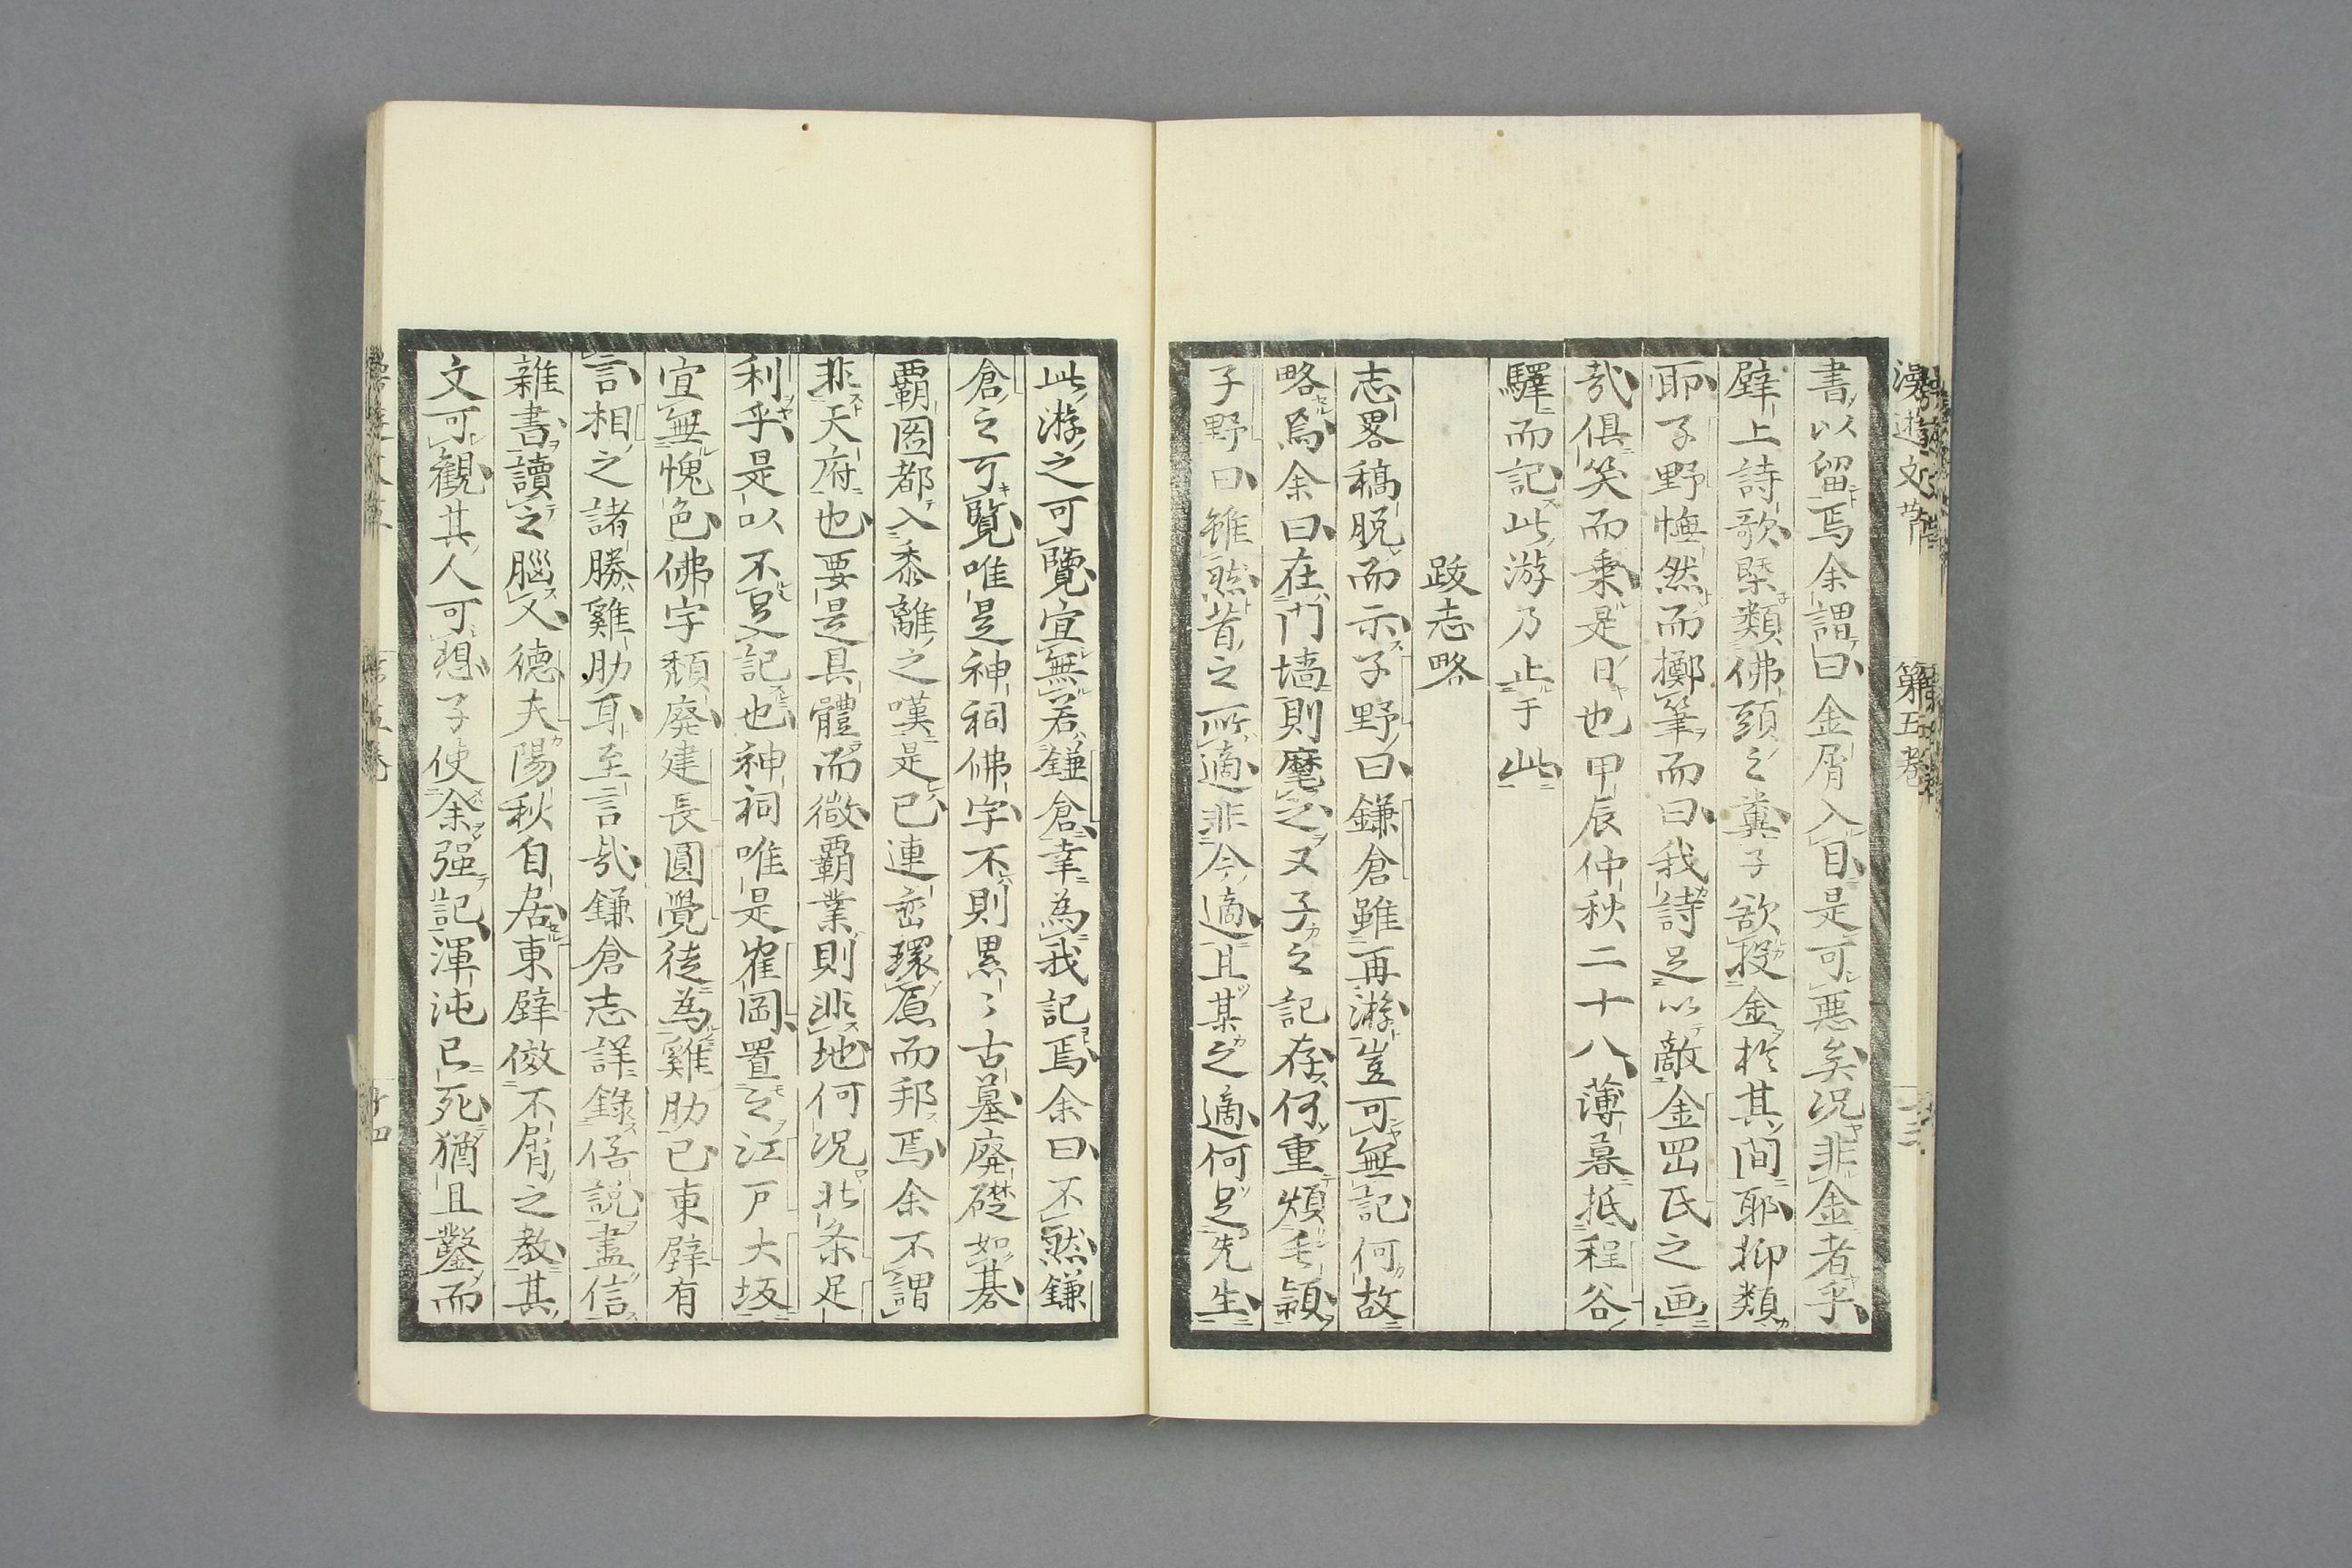 書以留焉余謂曰金屑入目是可惡矣况非金者乎
壁上詩歌槩類佛頭之糞子欲投金於其間耶抑類
耶子野憮然而擲筆而曰我詩足以敵金罡氏之画
哉俱笑而乗是日也甲辰仲秋二十八薄暮抵程谷
驛而記此游乃止于此
跋志略
志畧稿脱而示子野曰鎌倉雖再游豈可無記何故
略焉余曰在門墻則麾之又子之記存何重煩毛穎
子野曰雖然昔之所適非今適且某之適何足先生
此游之可覽宜無若鎌倉幸為我記焉余曰不然鎌
倉之可覽唯是神祠佛宇不則累〻古墓廃礎如碁
覇圖都入黍離之嘆是已連巒環原而邦焉余不謂
非天府也要是具體而微覇業則非地何况北条足
利乎是以不足記也神祠唯是隺岡置之江戸大坂
宜無愧色佛宇頽廃建長圓覺徒為雞肋已東壁有
言相之諸勝雞肋耳至言哉鎌倉志詳錄俗説盡信
雜書讀之腦又德夫陽秋自居東壁儌不屑之教其
文可觀其人可想子使余强記渾沌已死猶且鑿而
漫遊文草　第五巻